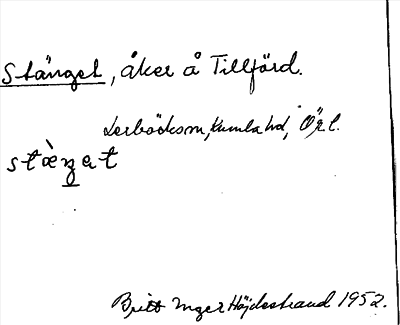 Stänget, åker å Tillfjörd.
Lerbäcksm, Kumla hd, Örl.
stæ̀ŋət
Britt Inger Höjdestrand 1952.